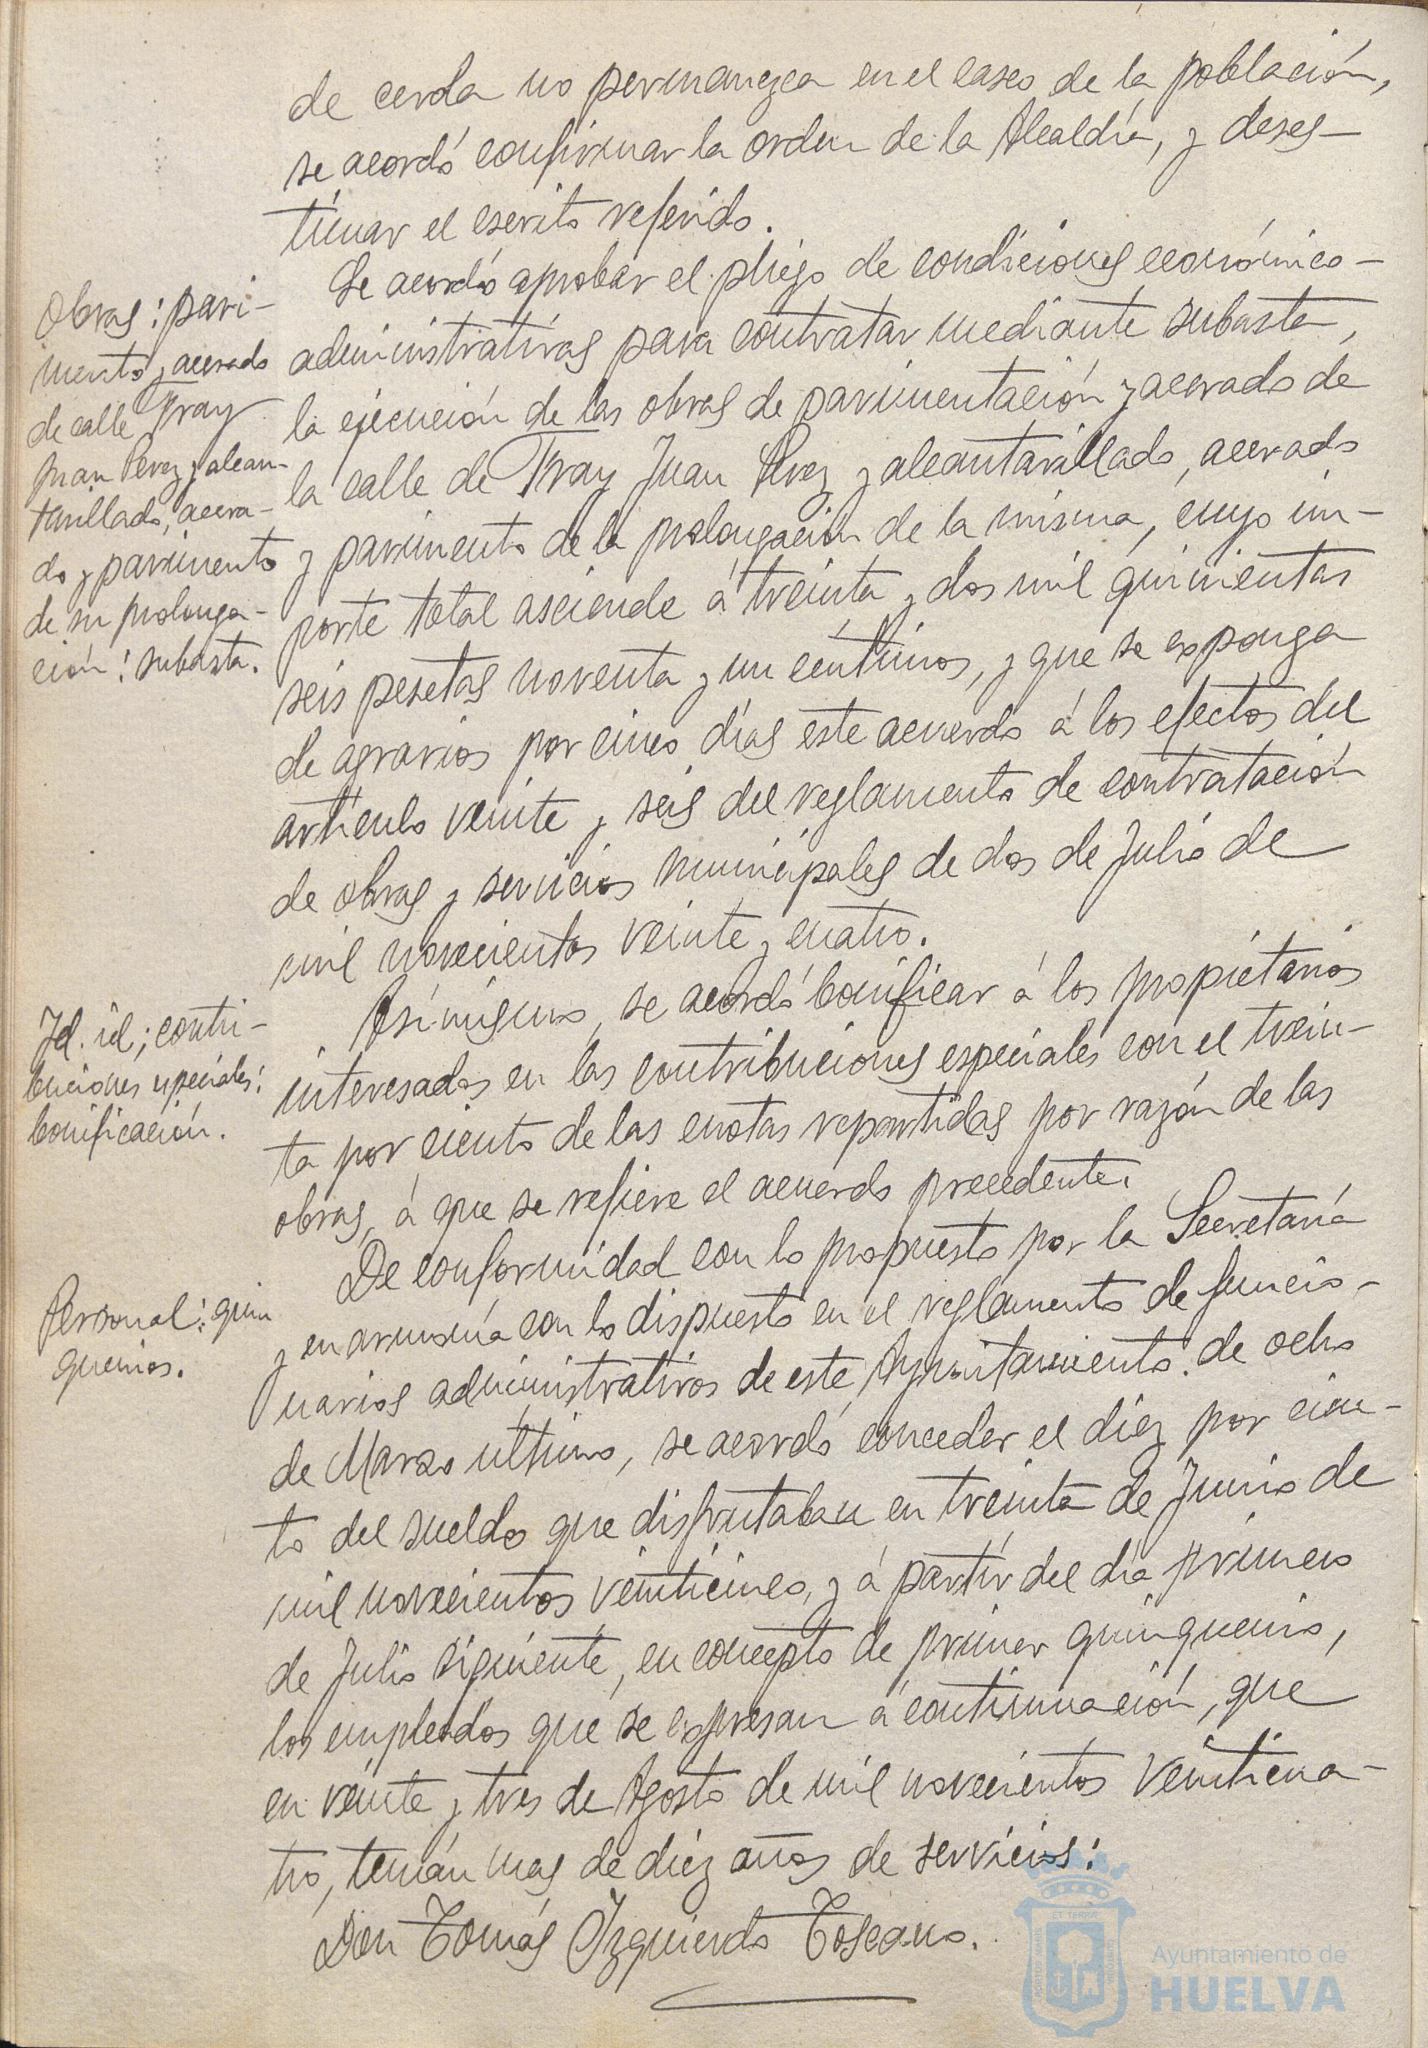 de cerda no permanezca en el casco de la población,
se acordó confirmar la orden de la Alcaldía, y deses-
timar el escrito referido.
Obras: pavi-
mento y acerado
de calle Fray
Juan Perez y alcan-
tarillado, acera-
do y pavimento
de su prolonga-
ción: subasta.
Se acordó aprobar el pliego de condiciones económico-
administrativas para contratar mediante subasta,
la ejecución de las obras de pavimentación y acerado de
la calle de Fray Juan Perez y alcantarillado, acerado
y pavimento de la prolongación de la misma, cuyo im-
porte total asciende á treinta y dos mil quinientas
seis pesetas noventa y un céntimos, y que se exponga
de agravios por cinco días este acuerdo á los efectos del
artículo veinte y seis del reglamento de contratación
de obras y servicios municipales de dos de Julio de
mil novecientos veinte y cuatro.
Id. id; contri-
buciones especiales:
bonificación.
Asímismo, se acordó bonificar á los propietarios
interesados en las contribuciones especiales con el trein-
ta por ciento de las cuotas repartidas por razón de las
obras, á que se refiere el acuerdo precedente.
Personal: quin
quenios.
De conformidad con lo propuesto por la Secretaría
y en armonía con lo dispuesto en el reglamento de funcio-
narios administrativos de este Ayuntamiento de ocho
de Marzo ultimo, se acordó conceder el diez por cien-
to del sueldo que disfrutaban en treinta de Junio de
mil novecientos veinticinco, y á partir del día primero
de Julio siguiente, en concepto de primer quinquenio,
los empleados que se expresan á continuación, que
en veinte y tres de Agosto de mil novecientos veinticua-
tro, tenían mas de diez años de servicios:
Don Tomás Izquierdo Toscano.
Ayuntamiento de
HUELVA